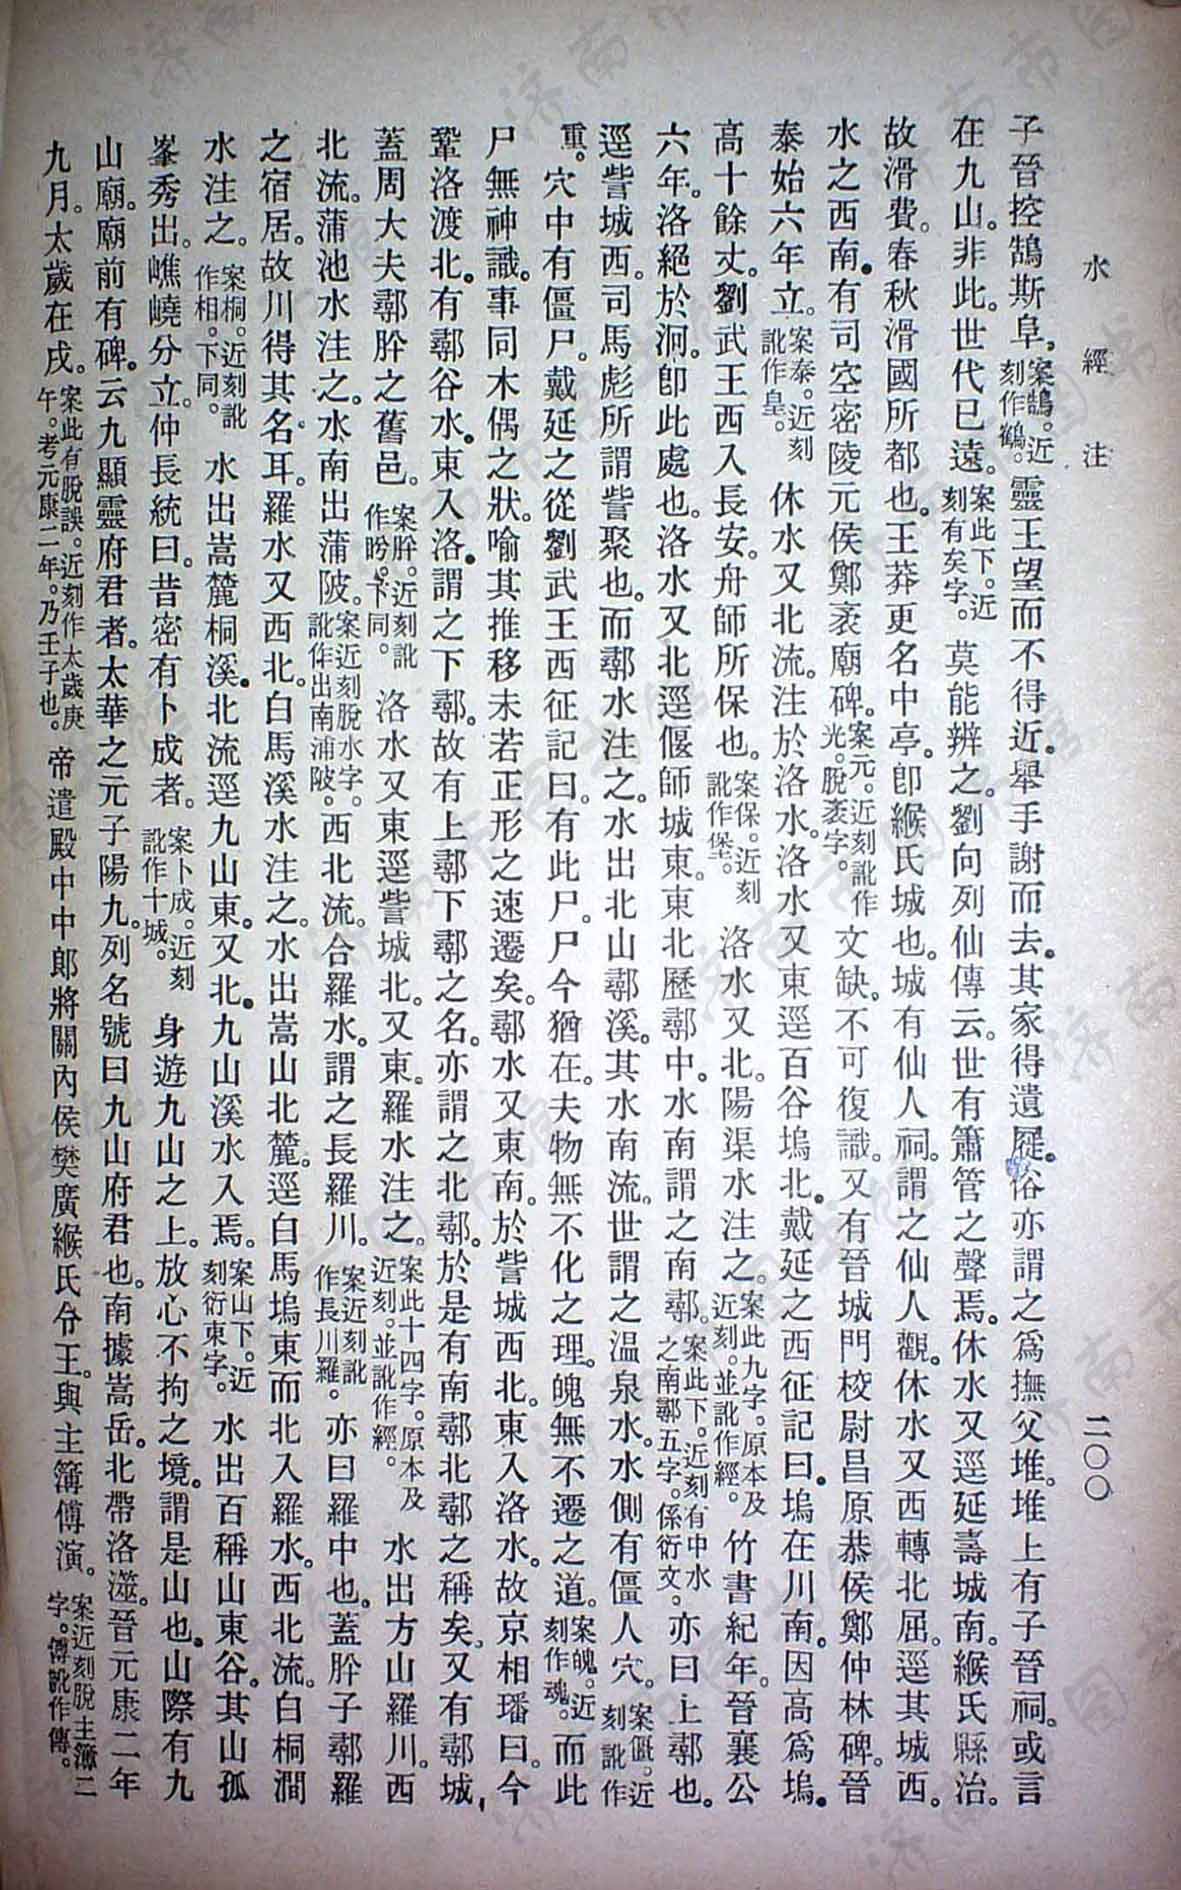 水經注
二〇〇
子晉控鵠斯阜，案鵠。近刻作鶴。靈王望而不得近。舉手謝而去。其家得遺屣。俗亦謂之爲撫父堆。堆上有子晉祠。或言
在九山。非此。世代已遠。案此下。近刻有矣字。莫能辨之。劉向列仙傳云。世有簫管之聲焉。休水又逕延壽城南。緱氏縣治。
故滑費。春秋滑國所都也。王莽更名中亭。卽緱氏城也。城有仙人祠。謂之仙人觀。休水又西轉北屈。逕其城西。
水之西南。有司空密陵元侯鄭袤廟碑。案元。近刻訛作光。脫袤字。文缺。不可復識。又有晉城門校尉昌原恭侯鄭仲林碑。晉
泰始六年立。案泰。近刻訛作皇。休水又北流。注於洛水。洛水又東逕百谷塢北。戴延之西征記曰。塢在川南。因高爲塢。
高十餘丈。劉武王西入長安。舟師所保也。案保。近刻訛作堡。洛水又北。陽渠水注之。案此九字。原本及近刻。並訛作經。竹書紀年。晉襄公
六年。洛絕於泂。卽此處也。洛水又北逕偃師城東。東北歷鄩中。水南謂之南鄩。案此下。近刻有中水之南鄩五字。係衍文。亦曰上鄩也。
逕訾城西。司馬彪所謂訾聚也。而鄩水注之。水出北山鄩溪。其水南流。世謂之温泉水。水側有僵人穴。案僵。近刻訛作
重。穴中有僵尸。戴延之從劉武王西征記曰。有此尸。尸今猶在。夫物無不化之理。魄無不遷之道。案魄。近刻作魂。而此
尸無神識。事同木偶之狀。喻其推移未若正形之速遷矣。鄩水又東南。於訾城西北。東入洛水。故京相璠曰。今
鞏洛渡北。有鄩谷水。東入洛。謂之下鄩。故有上鄩下鄩之名。亦謂之北鄩。於是有南鄩北鄩之稱矣。又有鄩城，
蓋周大夫鄩肸之舊邑。案肸。近刻訛作盻。下同。洛水又東逕訾城北。又東。羅水注之。案此十四字。原本及近刻。並訛作經。水出方山羅川。西
北流。蒲池水注之。水南出蒲陂。案近刻脫水字。訛作出南浦陂。西北流。合羅水。謂之長羅川。案近刻訛作長川羅。亦曰羅中也。蓋肸子鄩羅
之宿居。故川得其名耳。羅水又西北。白馬溪水注之。水出嵩山北麓。逕白馬塢東而北入羅水。西北流。白桐澗
水注之。案桐。近刻訛作相。下同。水出嵩麓桐溪。北流逕九山東。又北。九山溪水入焉。案山下。近刻衍東字。水出百稱山東谷。其山孤
峯秀出。嶕嶢分立。仲長統曰。昔密有卜成者。案卜成。近刻訛作十城。身遊九山之上。放心不拘之境。謂是山也。山際有九
山廟。廟前有碑。云九顯靈府君者。太華之元子陽九。列名號曰九山府君也。南據嵩岳。北帶洛澨。晉元康二年
九月。太歲在戌。案此有脫誤。近刻作太歲庚午。考元康二年。乃壬子也。帝遣殿中中郎將關內侯樊廣緱氏令王。與主簿傅演。案近刻脫主簿二字。傅訛作傳。